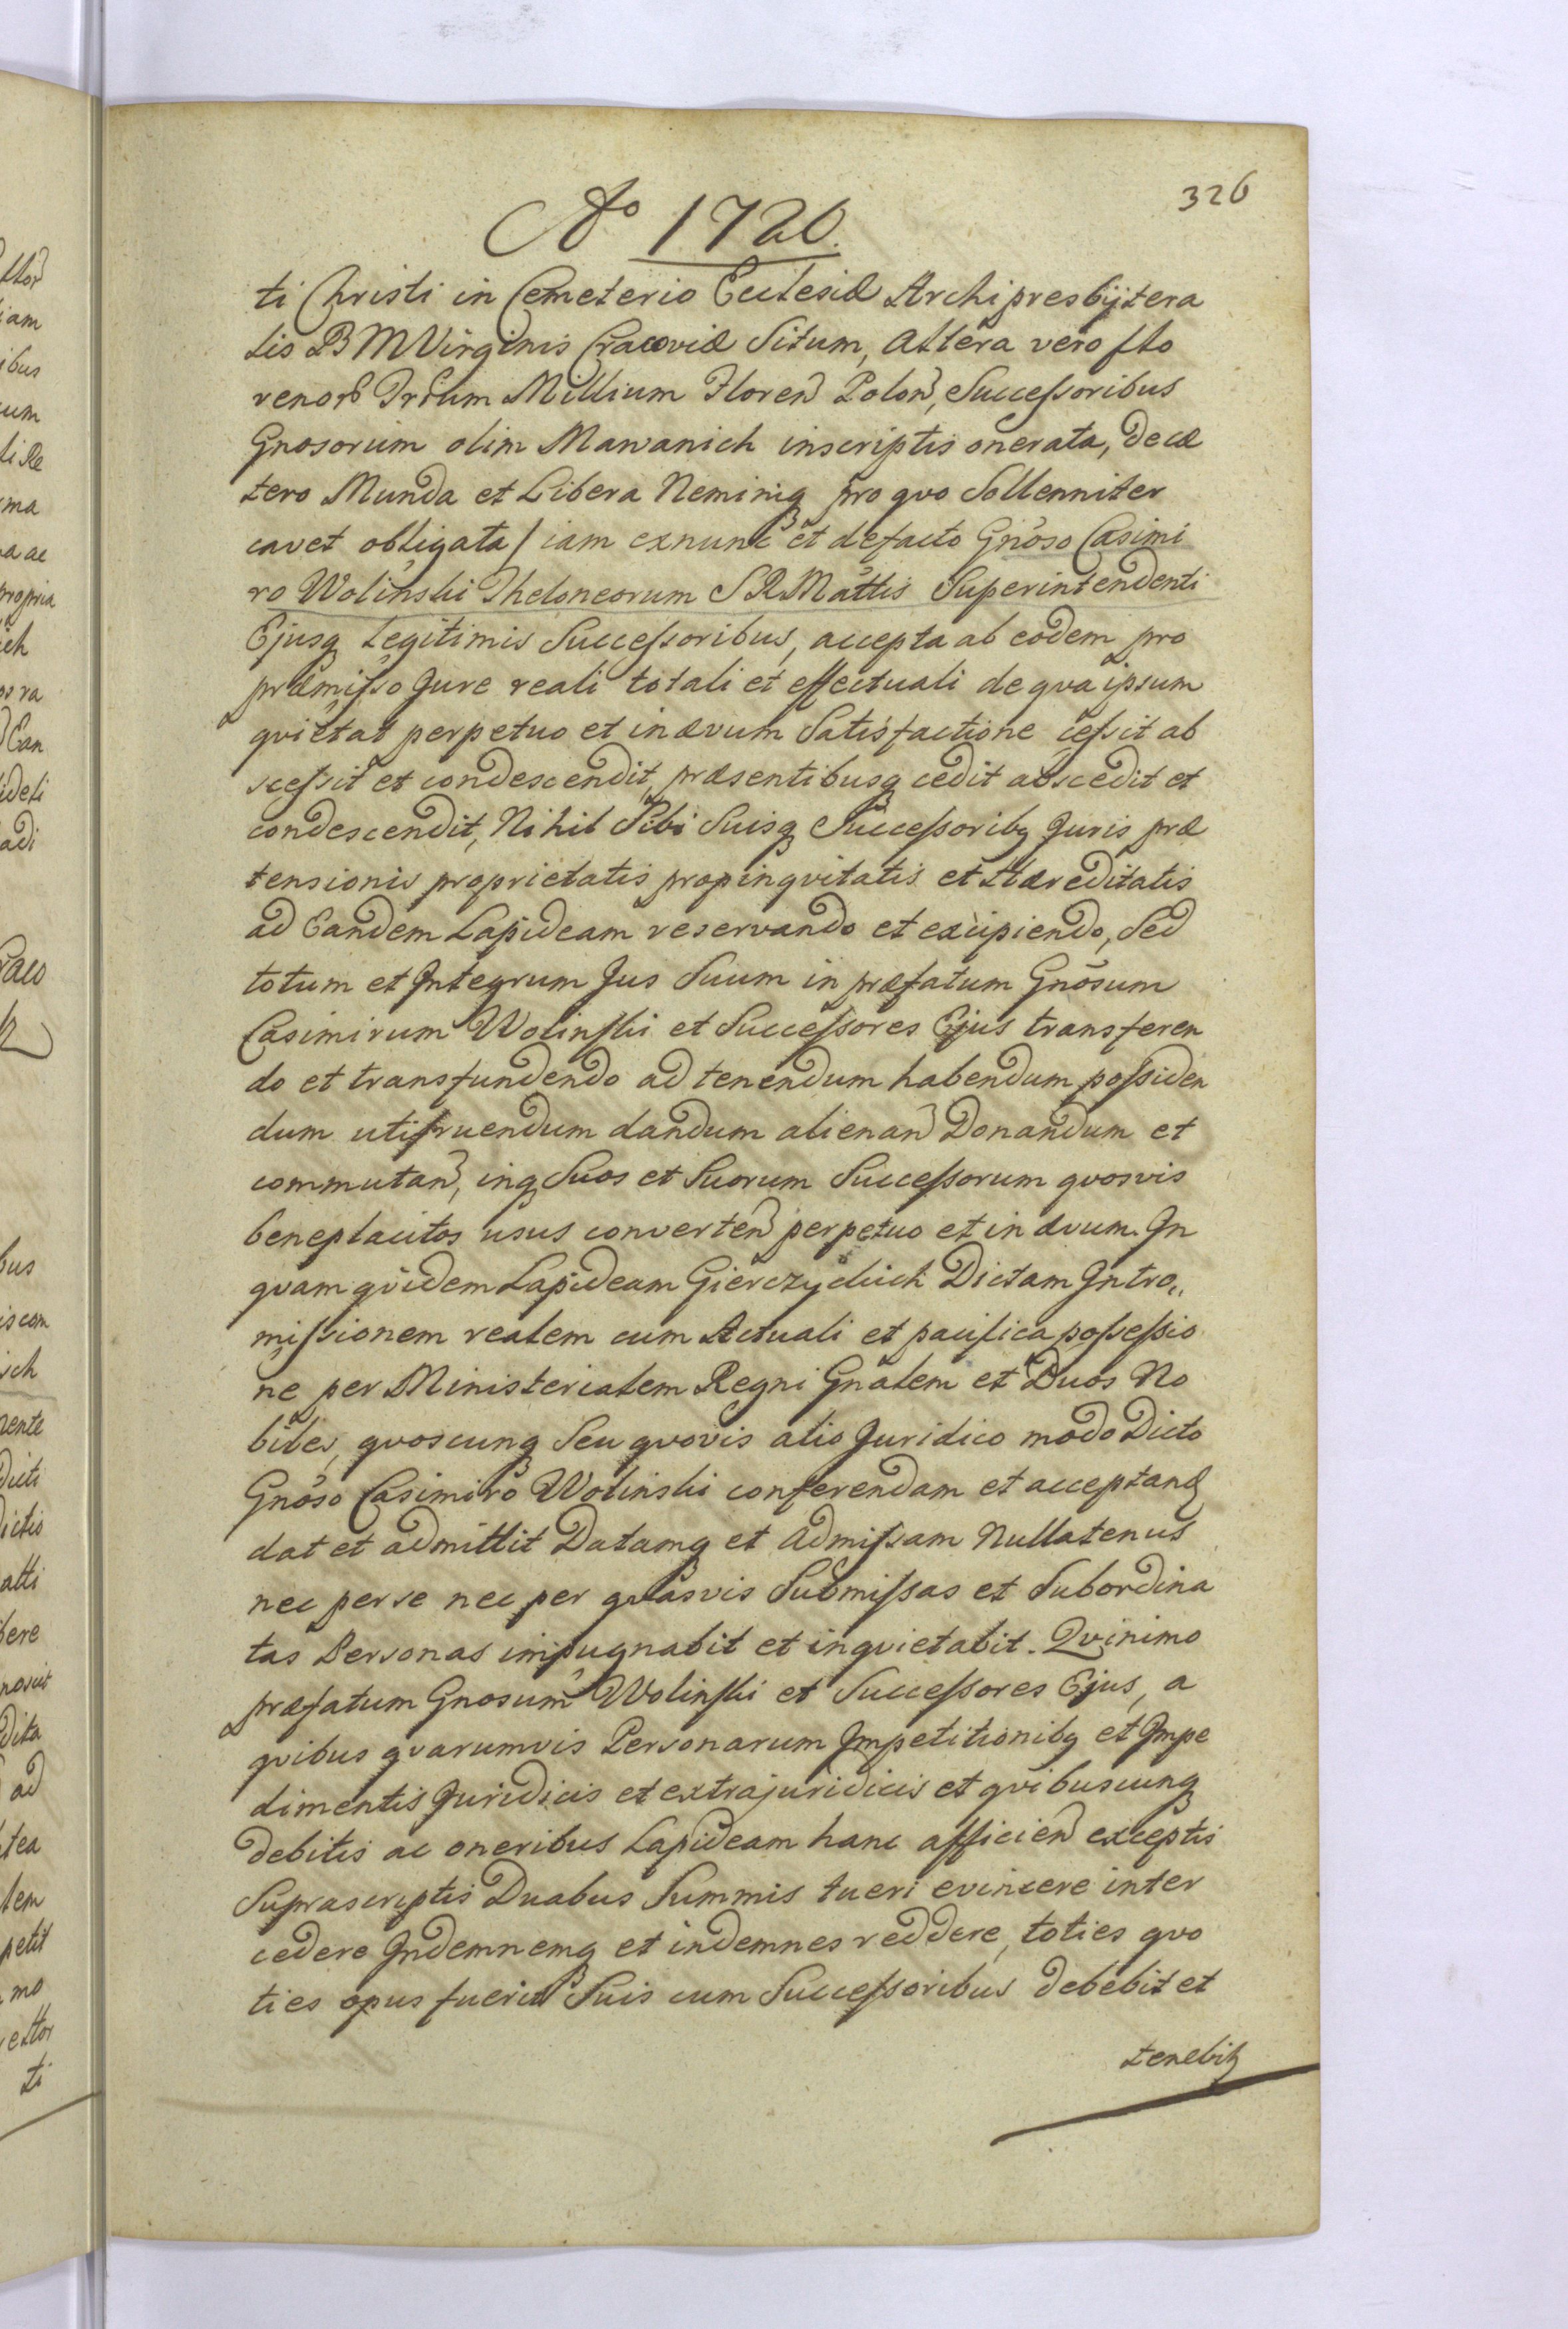 326
Aº 1720.
ti Christi in Cemeterio Ecclesiæ Archipresbÿtera
lis B M Virginis Cracoviæ Situm, altera vero flo
renor Trium Millium Floren Polon, Successoribus
Gnosorum olim Mawanich inscriptis onerata, de cæ
tero Munda et Libera Neminiq pro qvo Sollenniter
cavet obligata / iam exnunc et defacto Gnõso Casimi
ro Wolinski Theloneorum S R Mattis Superintendenti
Ejusq Legitimis Successoribus, accepta ab eodem pro
præmisso Jure reali totali et effectuali de qva ipsum
qvietat perpetuo et in ævum Satisfactione cessit ab
scessit et condescendit, præsentibusq cedit abscedit et
condescendit, Nihil Sibi Suisq Successoribq Juris præ
tensionis proprietatis propinqvitatis et Hæreditatis
ad Eandem Lapideam reservando et excipiendo, Sed
totum et Integrum Jus Suum in præfatum Gnõsum
Casimirum Wolinski et Successores Ejus transferen
do et transfundendo ad tenendum habendum possiden
dum utifruendum dandum alienan Donandum et
commutan, inq Suos et Suorum Successorum qvosvis
beneplacitos usus converten perpetuo et in ævum. In
qvam qvidem Lapideam Gierczyckich Dictam Intro„
missionem realem cum Actuali et pacifica possessio
ne per Ministerialem Regni Gnalem et Duos No
biles, qvoscunq Seu qvovis alio Juridico modo Dicto
Gnõso Casimiro Wolinski conferendam et acceptand
dat et admittit Datamq et Admissam Nullatenus
nec per se nec per qvasvis Submissas et Subordina
tas Personas impugnabit et inqvietabit. Qvinimo
præfatum Gnosum Wolinski et Successores Ejus, a
qvibus qvarumvis Personarum Impetitionibq et Impe
dimentis Juridicis et extrajuridicis et qvibuscunq
debitis ac oneribus Lapideam hanc afficien exceptis
Suprascriptis Duabus Summis tueri evincere inter
cedere Indemnemq et indemnes reddere, toties qvo
ties opus fuerit Suis cum Successoribus debebit et
tenebitq